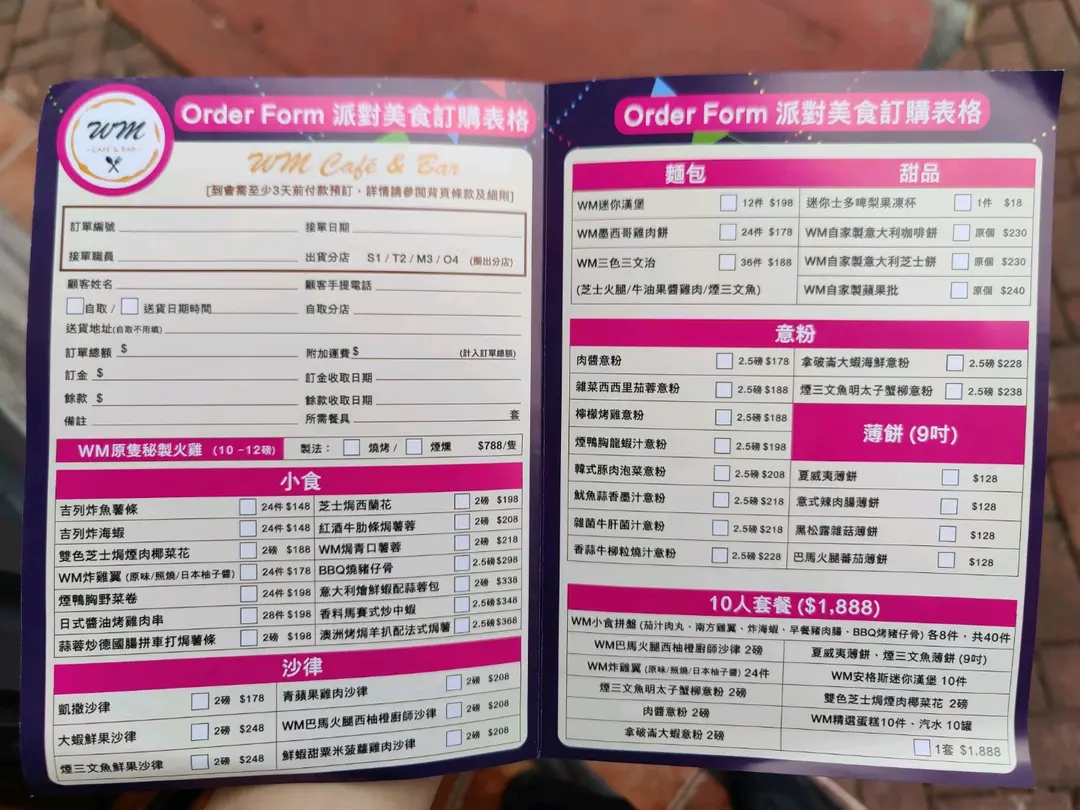 WM
CAFE & BAR
Order Form 派對美食訂購表格
WM Café & Bar
[到會需至少3天前付款預訂、詳情請參閱背頁條款及細則]
訂單編號 接單日期
接單職員 出貨分店 S1 / T2 / M3 / O4 (圈出分店)
顧客姓名 顧客手提電話
自取 / 送貨日期時間 自取分店
送貨地址(自取不用填)
訂單總額 $ 附加運費 $ (計入訂單總額)
訂金 $ 訂金收取日期
餘款 $ 餘款收取日期
備註 所需餐具 套
WM原隻秘製火雞 (10 -12磅) 製法： 燒烤 / 煙燻 $788/隻
小食
吉列炸魚薯條 24件 $148 芝士焗西蘭花 2磅 $198
吉列炸海蝦 24件 $148 紅酒牛肋條焗薯蓉 2磅 $208
雙色芝士焗煙肉椰菜花 2磅 $188 WM焗青口薯蓉 2磅 $218
WM炸雞翼 (原味/照燒/日本柚子醬) 24件 $178 BBQ燒豬仔骨 2.5磅 $298
煙鴨胸野菜卷 24件 $198 意大利燴鮮蝦配蒜蓉包 2磅 $338
日式醬油烤雞肉串 28件 $198 香料馬賽式炒中蝦 2.5磅 $348
蒜蓉炒德國腸拼車打焗薯條 2磅 $198 澳洲烤焗羊扒配法式焗薯 2.5磅 $368
沙律
凱撒沙律 2磅 $178 青蘋果雞肉沙律 2磅 $208
大蝦鮮果沙律 2磅 $248 WM巴馬火腿西柚橙廚師沙律 2磅 $208
煙三文魚鮮果沙律 2磅 $248 鮮蝦甜粟米菠蘿雞肉沙律 2磅 $208
Order Form 派對美食訂購表格
麵包 甜品
WM迷你漢堡 12件 $198 迷你士多啤梨果凍杯 1件 $18
WM墨西哥雞肉餅 24件 $178 WM自家製意大利咖啡餅 原個 $230
WM三色三文治 36件 $188 WM自家製意大利芝士餅 原個 $230
(芝士火腿/牛油果醬雞肉/煙三文魚) WM自家製蘋果批 原個 $240
意粉
肉醬意粉 2.5磅 $178 拿破崙大蝦海鮮意粉 2.5磅 $228
雜菜西西里茄蓉意粉 2.5磅 $188 煙三文魚明太子蟹柳意粉 2.5磅 $238
檸檬烤雞意粉 2.5磅 $188
薄餅 (9吋)
煙鴨胸龍蝦汁意粉 2.5磅 $198
韓式豚肉泡菜意粉 2.5磅 $208 夏威夷薄餅 $128
魷魚蒜香墨汁意粉 2.5磅 $218 意式辣肉腸薄餅 $128
雜菌牛肝菌汁意粉 2.5磅 $218 黑松露雜菇薄餅 $128
香蒜牛柳粒燒汁意粉 2.5磅 $228 巴馬火腿蕃茄薄餅 $128
10人套餐 ($1,888)
WM小食拼盤 (茄汁肉丸、南方雞翼、炸海蝦、早餐豬肉腸、BBQ烤豬仔骨) 各8件，共40件
WM巴馬火腿西柚橙廚師沙律 2磅 夏威夷薄餅、煙三文魚薄餅 (9吋)
WM炸雞翼 (原味/照燒/日本柚子醬) 24件 WM安格斯迷你漢堡 10件
煙三文魚明太子蟹柳意粉 2磅 雙色芝士焗煙肉椰菜花 2磅
肉醬意粉 2磅 WM精選蛋糕10件、汽水 10罐
拿破崙大蝦意粉 2磅 1套 $1,888